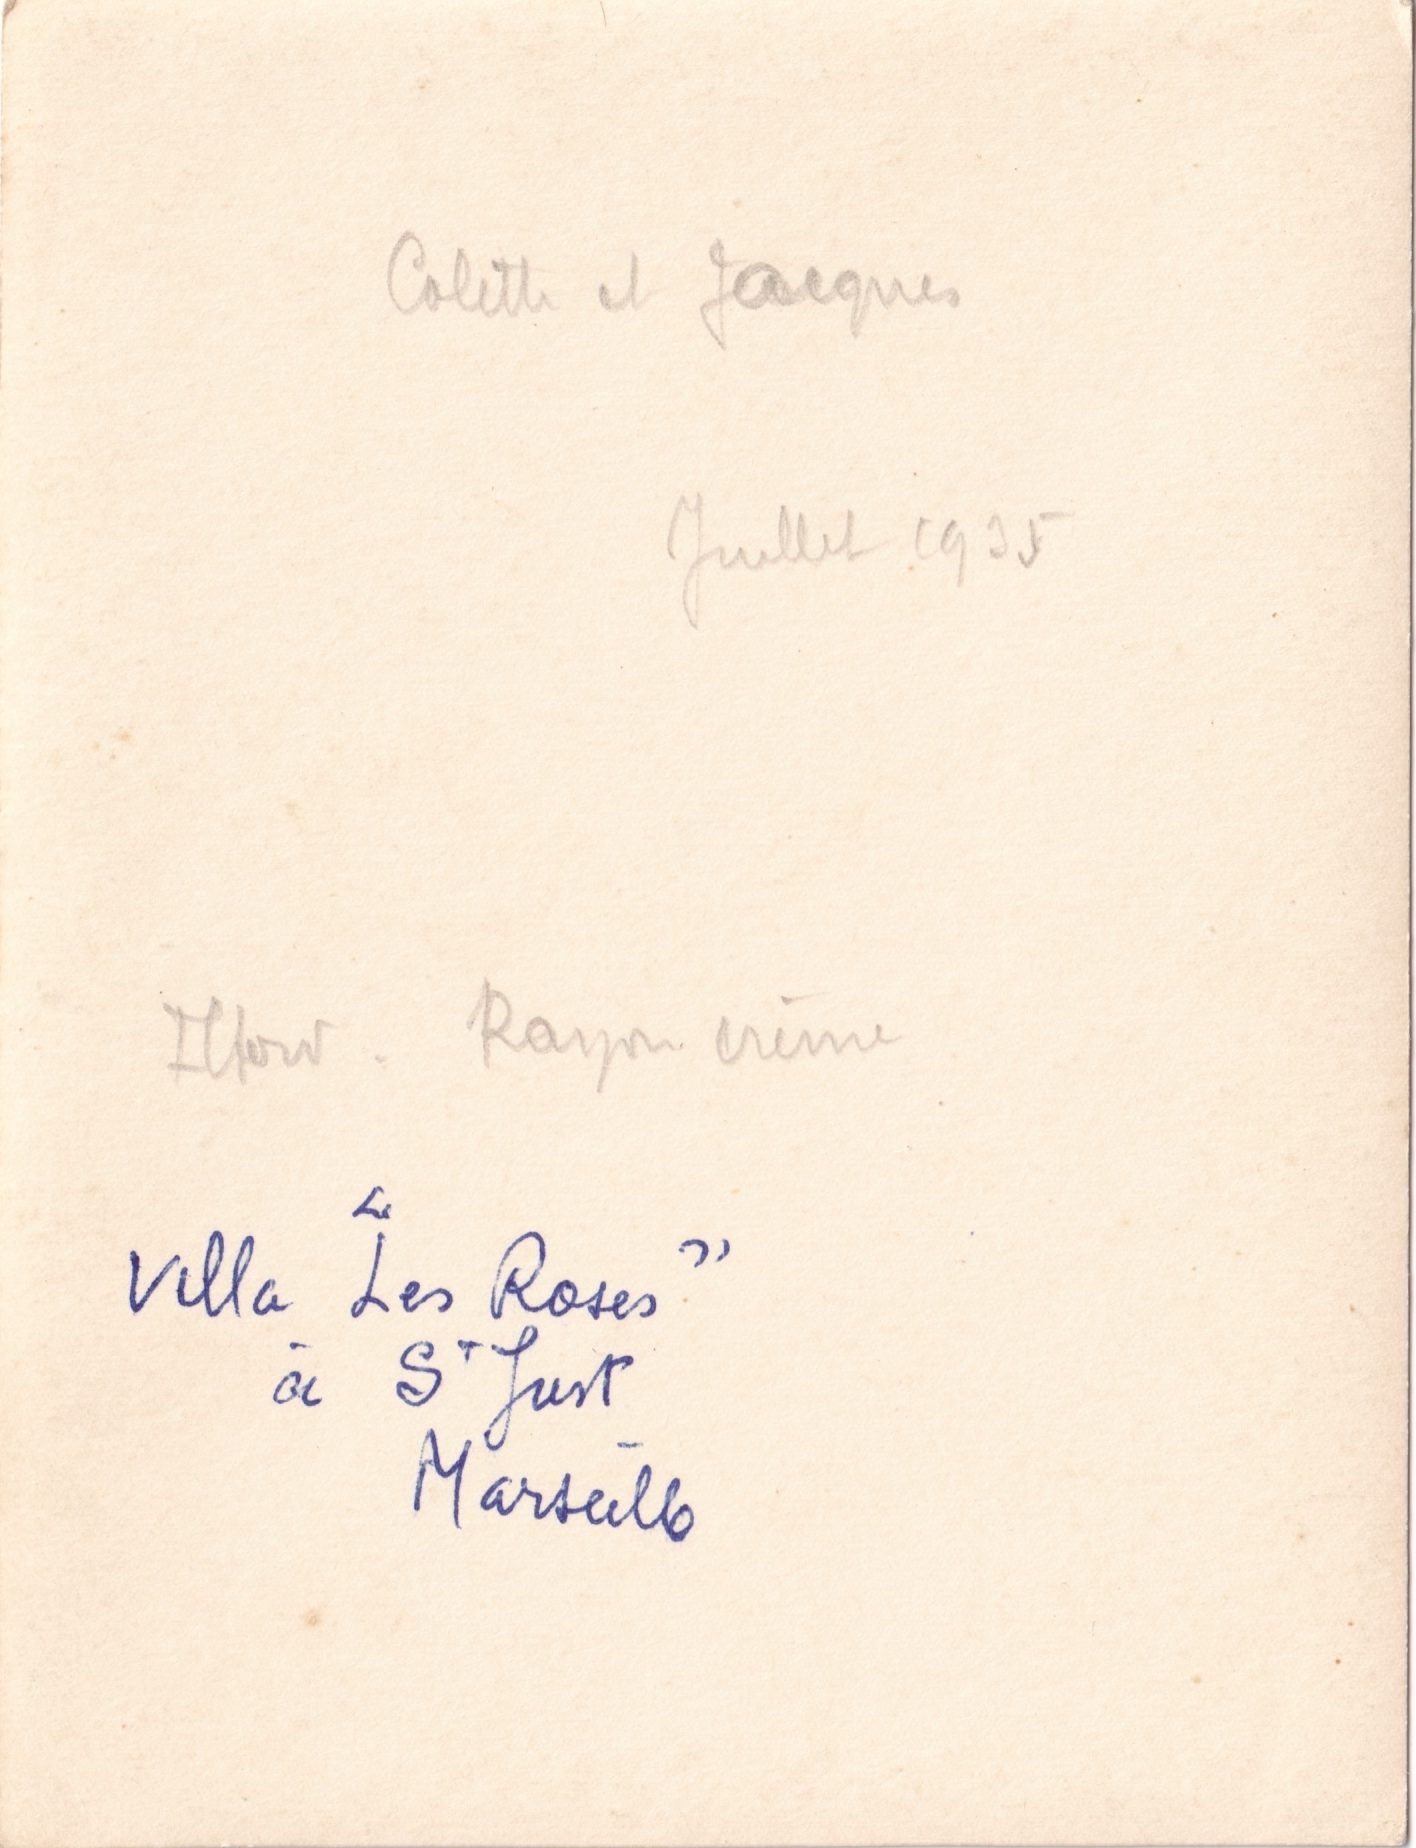 Colette et Jacques
Juillet 1935
Ilford. Rayon crème
Villa "Les Roses"
à St Just
Marseille